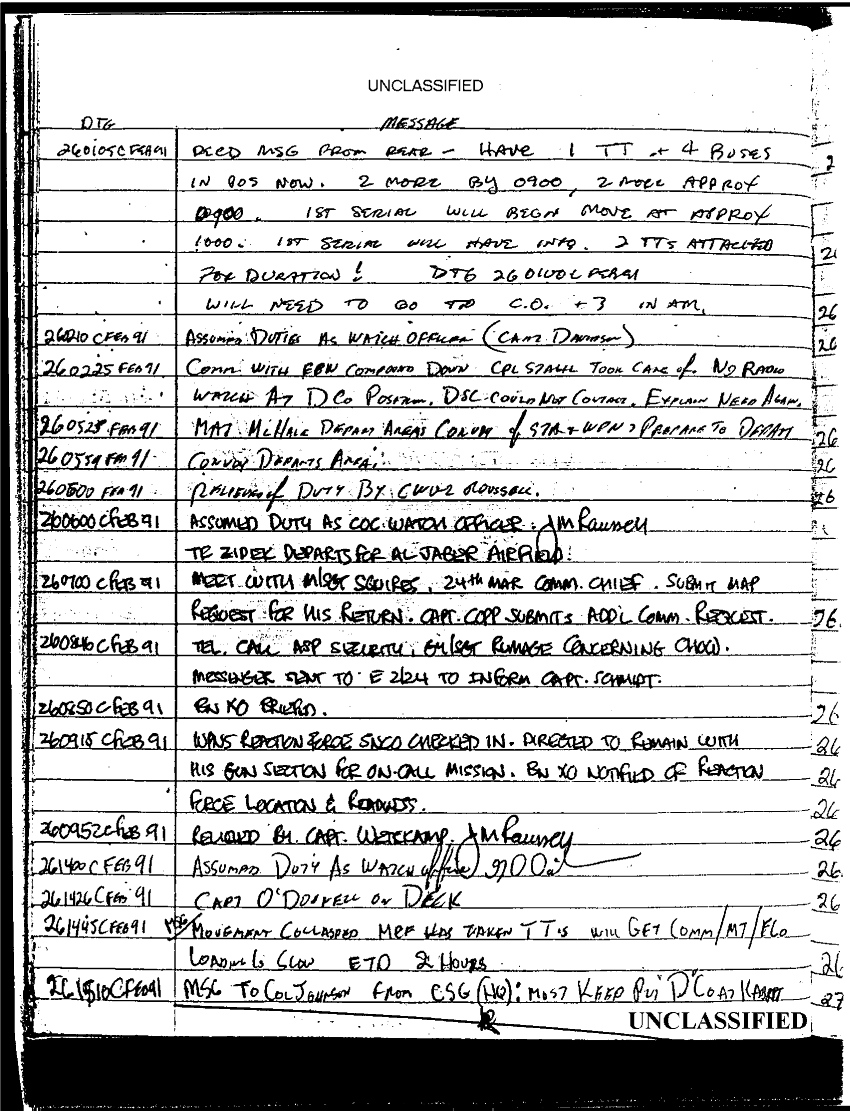 UNCLASSIFIED
DTG MESSAGE
260105C FEB 91 RCCD MSG FROM REAR - HAVE 1 TT + 4 BUSES
IN POS NOW. 2 MORE BY 0900, 2 MORE APPROX
0900. 1ST SERIAL WILL BEGIN MOVE AT APPROX
1000. 1ST SERIAL WILL HAVE INFO. 2 TTS ATTACHED
FOR DURATION! DTG
WILL NEED TO GO TO C.O. +3 IN AM.
260210 C FEB 91 ASSUMED DUTIES AS WATCH OFFICER (CAPT DAVIDSON)
260225 FEB 91 COMM WITH COMPOUND DOWN CPL STAHL TOOK CARE of. NO RADIO
WATCH AT D CO POSITION. DSC COULD NOT CONTACT. EXPLAIN NEED AGAIN.
260525 FEB 91 MAJ McHALE DEPART AREAS CONVOY of STA + WPNS PREPARE TO DEPART
260559 FEB 91 CONVOY DEPARTS AREA.
260600 FEB 91 RELIEVED of DUTY BY CWO2 ROUSSELL.
260600 C FEB 91 ASSUMED DUTY AS COC WATCH OFFICER.
TF ZIDEK DEPARTS FOR AL JABER AIRFIELD.
260700 C FEB 91 MEET WITH M/SGT SQUIRES, 24th MAR COMM. CHIEF. SUBMIT MAP
REQUEST FOR HIS RETURN. CAPT. COPP SUBMITS ADD'L COMM. REQUEST.
260846 C FEB 91 TEL. CALL ASP SECURITY, G/SGT RUMAGE CONCERNING CHOW.
MESSENGER SENT TO E 2/24 TO INFORM CAPT. SCHMIDT.
260850 C FEB 91 BN XO BRIEFED.
260915 C FEB 91 WPNS REACTION FORCE SNCO CHECKED IN. DIRECTED TO REMAIN WITH
HIS GUN SECTION FOR ON-CALL MISSION. BN XO NOTIFIED OF REACTION
FORCE LOCATION & READINESS.
260952 C FEB 91 RELIEVED BY CAPT. WETEKAMP.
261400 C FEB 91 ASSUMED DUTY AS WATCH officer
261426 C FEB 91 CAPT O'DONNELL ON DECK
261445 C FEB 91 MSG MOVEMENT COLLAPSED MEF HAS TAKEN TT'S WILL GET COMM/MT/
LOADING IS SLOW ETD 2 HOURS
261510 C FEB 91 MSG TO COL JOHNSON FROM CSG (HQ): MUST KEEP "D" CO AT
UNCLASSIFIED